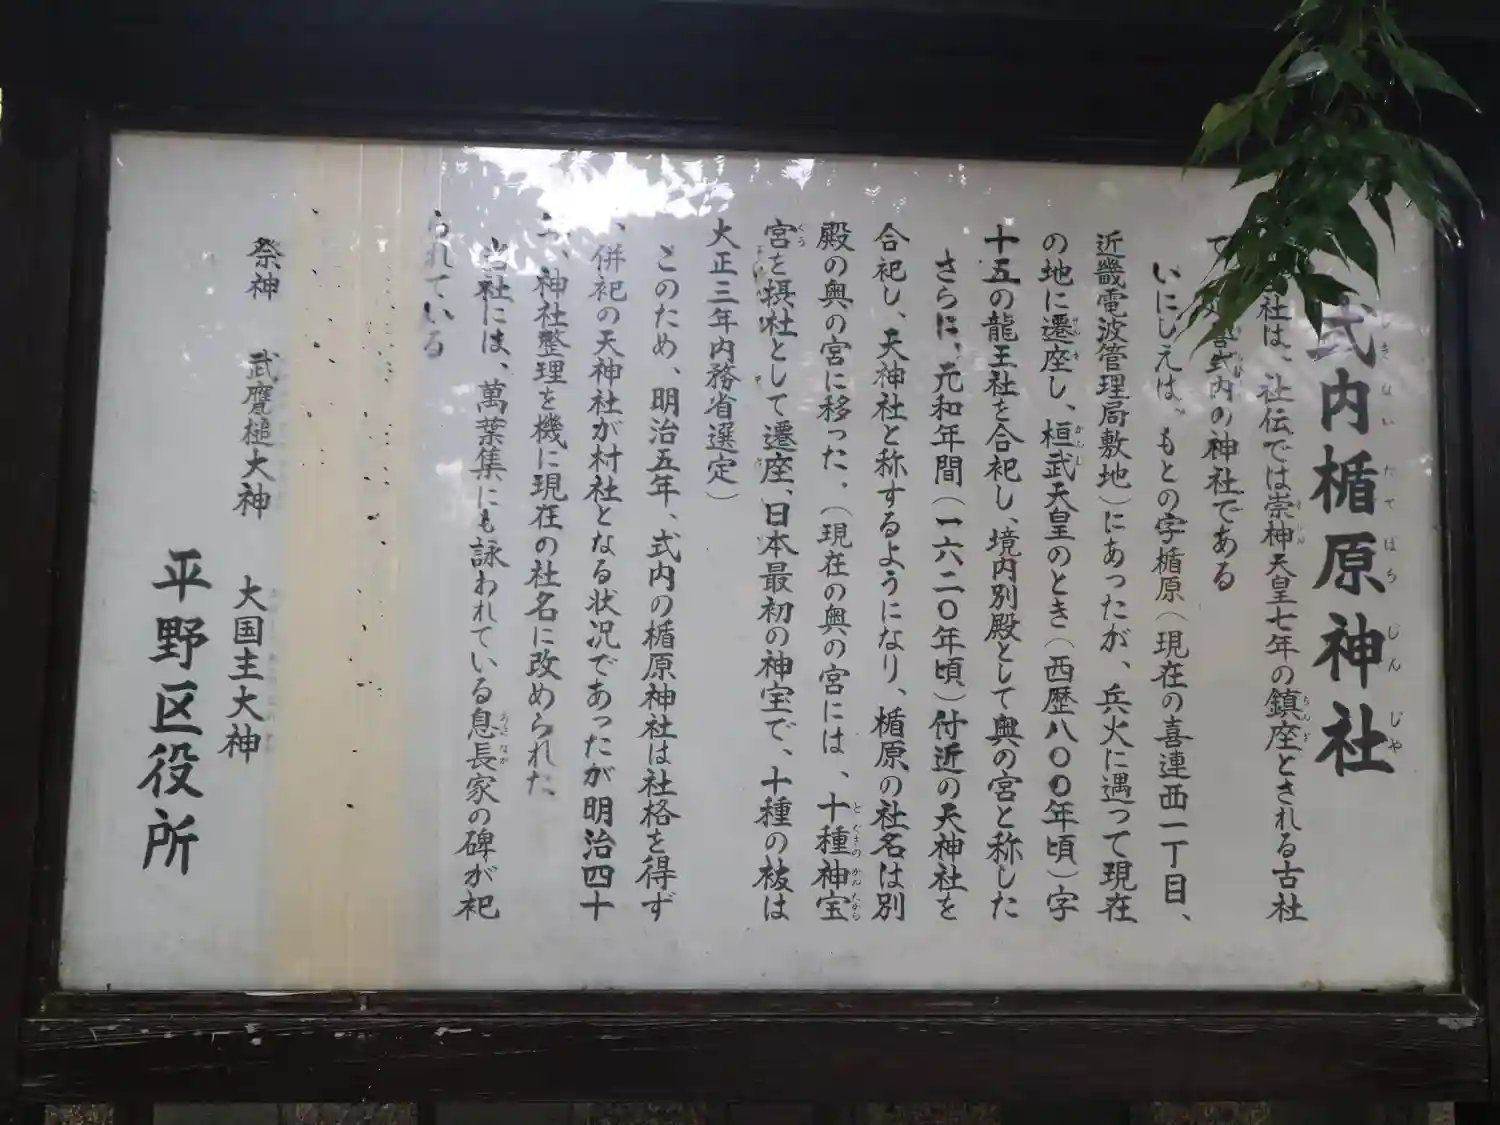 式内楯原神社
しきないたてはらじんじゃ
社は、社伝では崇神天皇七年の鎮座とされる古社
式内の神社である
いにしえは、もとの字楯原(現在の喜連西一丁目、
近畿電波管理局敷地)にあったが、兵火に遇って現在
の地に遷座し、桓武天皇のとき(西歴八〇〇年頃)字
十五の龍王社を合祀し、境内別殿として奥の宮と称した
さらに、元和年間(一六二〇年頃)付近の天神社を
合祀し、天神社と称するようになり、楯原の社名は別
殿の奥の宮に移った、(現在の奥の宮には、十種神宝
宮を摂社として遷座、日本最初の神宝で、十種の祓は
大正三年内務省選定)
このため、明治五年、式内の楯原神社は社格を得ず
、併祀の天神社が村社となる状況であったが明治四十
、神社整理を機に現在の社名に改められた
当社には、萬葉集にも詠われている息長家の碑が祀
られている
祭神 武甕槌大神 大国主大神
平野区役所